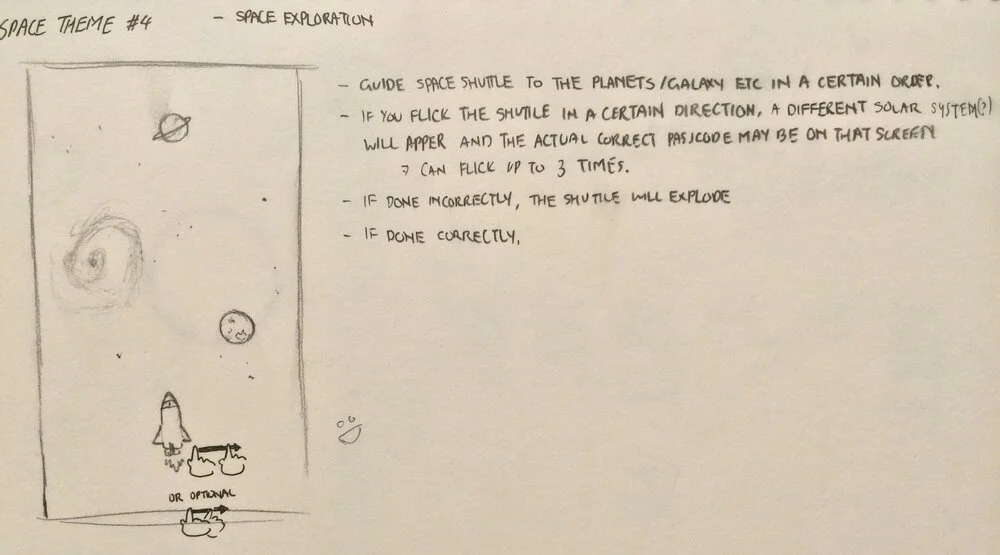 SPACE THEME #4 - SPACE EXPLORATION
- GUIDE SPACE SHUTTLE TO THE PLANETS/GALAXY ETC IN A CERTAIN ORDER.
- IF YOU FLICK THE SHUTTLE IN A CERTAIN DIRECTION, A DIFFERENT SOLAR SYSTEM(?)
WILL APPER AND THE ACTUAL CORRECT PASSCODE MAY BE ON THAT SCREEN
→ CAN FLICK UP TO 3 TIMES.
- IF DONE INCORRECTLY, THE SHUTTLE WILL EXPLODE
- IF DONE CORRECTLY,
OR OPTIONAL